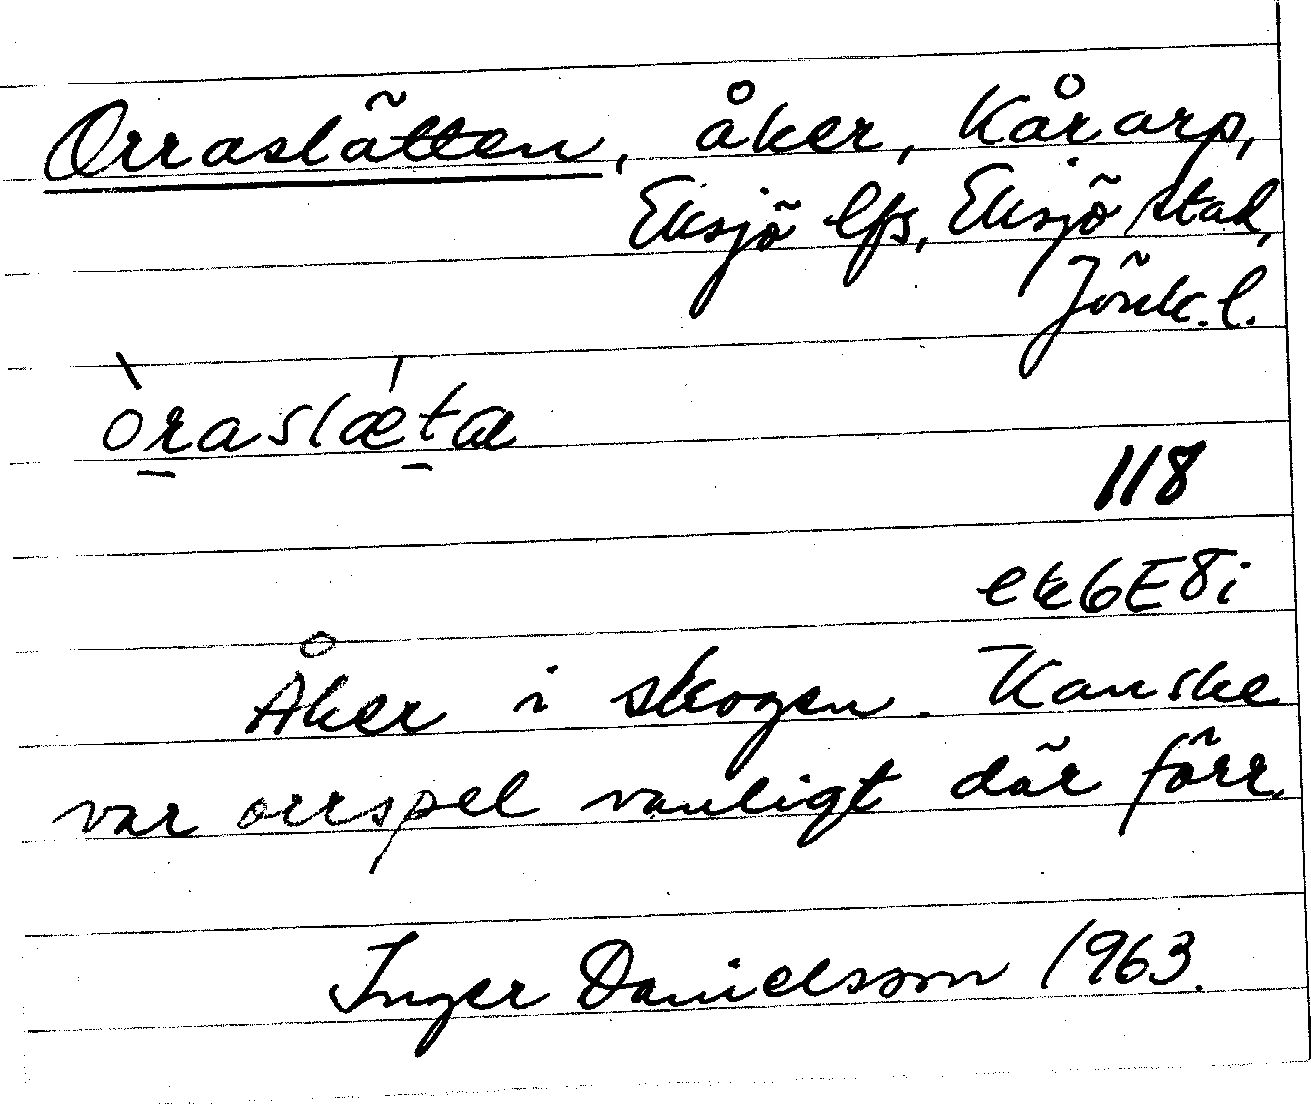 Orraslätten, åker, Kårarp,
Eksjö lfs, Eksjö stad,
Jönk. l.
òr̠aslǽt̠a
118
ek6E8i
Åker i skogen. Kanske
var orrspel vanligt där förr.
Inger Danielsson 1963.